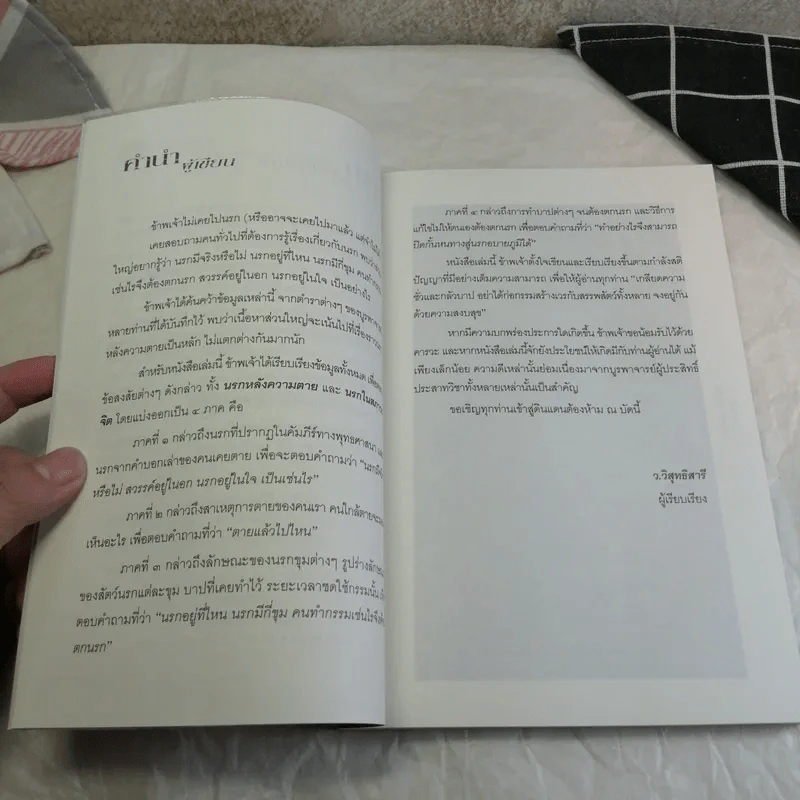 คำนำ ผู้เขียน
ข้าพเจ้าไม่เคยไปนรก (หรืออาจจะเคยไปมาแล้ว แต่จำไม่ได้
เคยสอบถามคนทั่วไปที่ต้องการรู้เรื่องเกี่ยวกับนรก พบว่า
ใหญ่อยากรู้ว่า นรกมีจริงหรือไม่ นรกอยู่ที่ไหน นรกมีกี่ขุม คนทำกรรม
เช่นไรจึงต้องตกนรก สวรรค์อยู่ในอก นรกอยู่ในใจ เป็นอย่างไร
ข้าพเจ้าได้ค้นคว้าข้อมูลเหล่านี้ จากตำราต่างๆ ของบูรพาจารย์
หลายท่านที่ได้บันทึกไว้ พบว่าเนื้อหาส่วนใหญ่จะเน้นไปที่เรื่อง
หลังความตายเป็นหลัก ไม่แตกต่างกันมากนัก
สำหรับหนังสือเล่มนี้ ข้าพเจ้าได้เรียบเรียงข้อมูลทั้งหมด
ข้อสงสัยต่างๆ ดังกล่าว ทั้ง นรกหลังความตาย และ นรกใน
จิต โดยแบ่งออกเป็น ๔ ภาค คือ
ภาคที่ ๑ กล่าวถึงนรกที่ปรากฏในคัมภีร์ทางพุทธศาสนา
นรกจากคำบอกเล่าของคนเคยตาย เพื่อจะตอบคำถามว่า “นรกมี
หรือไม่ สวรรค์อยู่ในอก นรกอยู่ในใจ เป็นเช่นไร”
ภาคที่ ๒ กล่าวถึงสาเหตุการตายของคนเรา คนใกล้ตายจะ
เห็นอะไร เพื่อตอบคำถามที่ว่า “ตายแล้วไปไหน”
ภาคที่ ๓ กล่าวถึงลักษณะของนรกขุมต่างๆ รูปร่างลักษณะ
ของสัตว์นรกแต่ละขุม บาปที่เคยทำไว้ ระยะเวลาชดใช้กรรมนั้น
ตอบคำถามที่ว่า “นรกอยู่ที่ไหน นรกมีกี่ขุม คนทำกรรมเช่นไรจึง
ตกนรก”
ภาคที่ ๔ กล่าวถึงการทำบาปต่างๆ จนต้องตกนรก และวิธีการ
แก้ไขไม่ให้ตนเองต้องตกนรก เพื่อตอบคำถามที่ว่า “ทำอย่างไรจึงสามารถ
ปิดกั้นหนทางสู่นรกอบายภูมิได้”
หนังสือเล่มนี้ ข้าพเจ้าตั้งใจเขียนและเรียบเรียงขึ้นตามกำลังสติ
ปัญญาที่มีอย่างเต็มความสามารถ เพื่อให้ผู้อ่านทุกท่าน “เกลียดความ
ชั่วและกลัวบาป อย่าได้ก่อกรรมสร้างเวรกับสรรพสัตว์ทั้งหลาย จงอยู่กัน
ด้วยความสงบสุข”
หากมีความบกพร่องประการใดเกิดขึ้น ข้าพเจ้าขอน้อมรับไว้ด้วย
คารวะ และหากหนังสือเล่มนี้จักยังประโยชน์ให้เกิดมีกับท่านผู้อ่านได้ แม้
เพียงเล็กน้อย ความดีเหล่านั้นย่อมเนื่องมาจากบูรพาจารย์ผู้ประสิทธิ์
ประสาทวิชาทั้งหลายเหล่านั้นเป็นสำคัญ
ขอเชิญทุกท่านเข้าสู่ดินแดนต้องห้าม ณ บัดนี้
ว.วิสุทธิสารี
ผู้เรียบเรียง